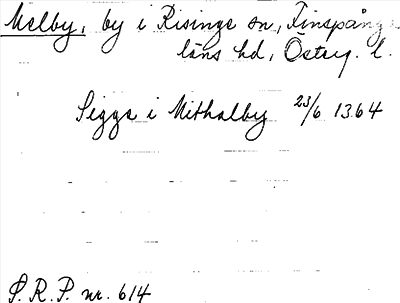 Melby, by i Risinge sn, Finspånga
läns hd, Östtg. l.
Siggs i Mithalby 23/6 1364
S.R.P. nr. 614